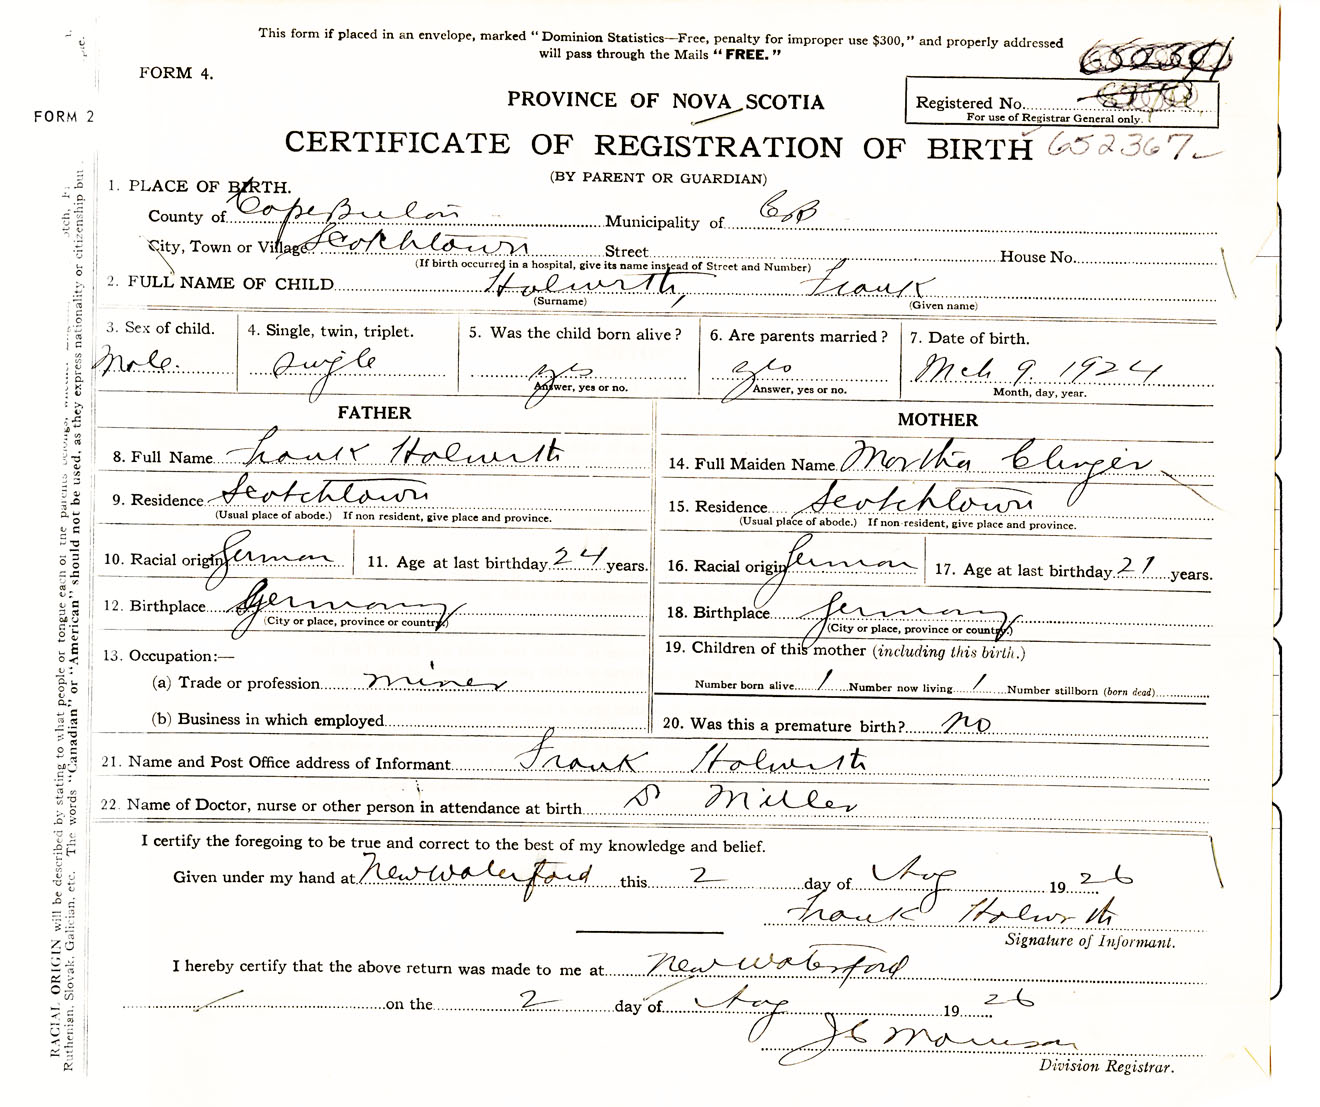 This form if placed in an envelope, marked "Dominion Statistics—Free, penalty for improper use $300," and properly addressed
will pass through the Mails "FREE."
FORM 4.
FORM 2
PROVINCE OF NOVA SCOTIA
Registered No.
For use of Registrar General only.
CERTIFICATE OF REGISTRATION OF BIRTH 652367
(BY PARENT OR GUARDIAN)
1. PLACE OF BIRTH.
County of Cape Breton Municipality of CB
City, Town or Village Scotchtown Street House No.
(If birth occurred in a hospital, give its name instead of Street and Number)
2. FULL NAME OF CHILD Holwrth, Frank
(Surname) (Given name)
3. Sex of child. 4. Single, twin, triplet. 5. Was the child born alive? 6. Are parents married? 7. Date of birth.
Male. single yes yes Mch 9 1924
Answer, yes or no. Answer, yes or no. Month, day, year.
FATHER MOTHER
8. Full Name Frank Holwrth 14. Full Maiden Name Martha Clinger
9. Residence Scotchtown 15. Residence Scotchtown
(Usual place of abode.) If non resident, give place and province. (Usual place of abode.) If non-resident, give place and province.
10. Racial origin German 11. Age at last birthday 24 years. 16. Racial origin German 17. Age at last birthday 21 years.
12. Birthplace Germany 18. Birthplace Germany
(City or place, province or country.) (City or place, province or country.)
13. Occupation:— 19. Children of this mother (including this birth.)
(a) Trade or profession miner Number born alive 1 Number now living 1 Number stillborn (born dead)
(b) Business in which employed 20. Was this a premature birth? no
21. Name and Post Office address of Informant Frank Holwrth
22. Name of Doctor, nurse or other person in attendance at birth Dr Miller
I certify the foregoing to be true and correct to the best of my knowledge and belief.
Given under my hand at New Waterford this 2 day of Aug 1926
Frank Holwrth
Signature of Informant.
I hereby certify that the above return was made to me at New Waterford
on the 2 day of Aug 1926
J C Morrison
Division Registrar.
RACIAL ORIGIN will be described by stating to what people or tongue each of the parents belongs,
Ruthenian, Slovak, Galician, etc. The words "Canadian" or "American" should not be used, as they express nationality or citizenship but